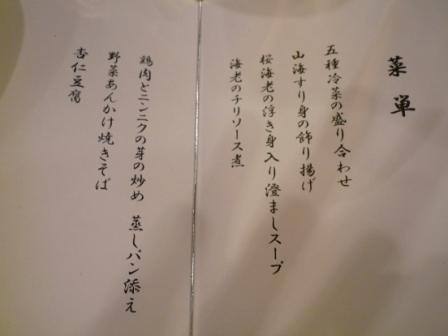 菜単
五種冷菜の盛り合わせ
山海すり身の飾り揚げ
桜海老の浮き身入り澄ましスープ
海老のチリソース煮
鶏肉とニンニクの芽の炒め 蒸しパン添え
野菜あんかけ焼きそば
杏仁豆腐